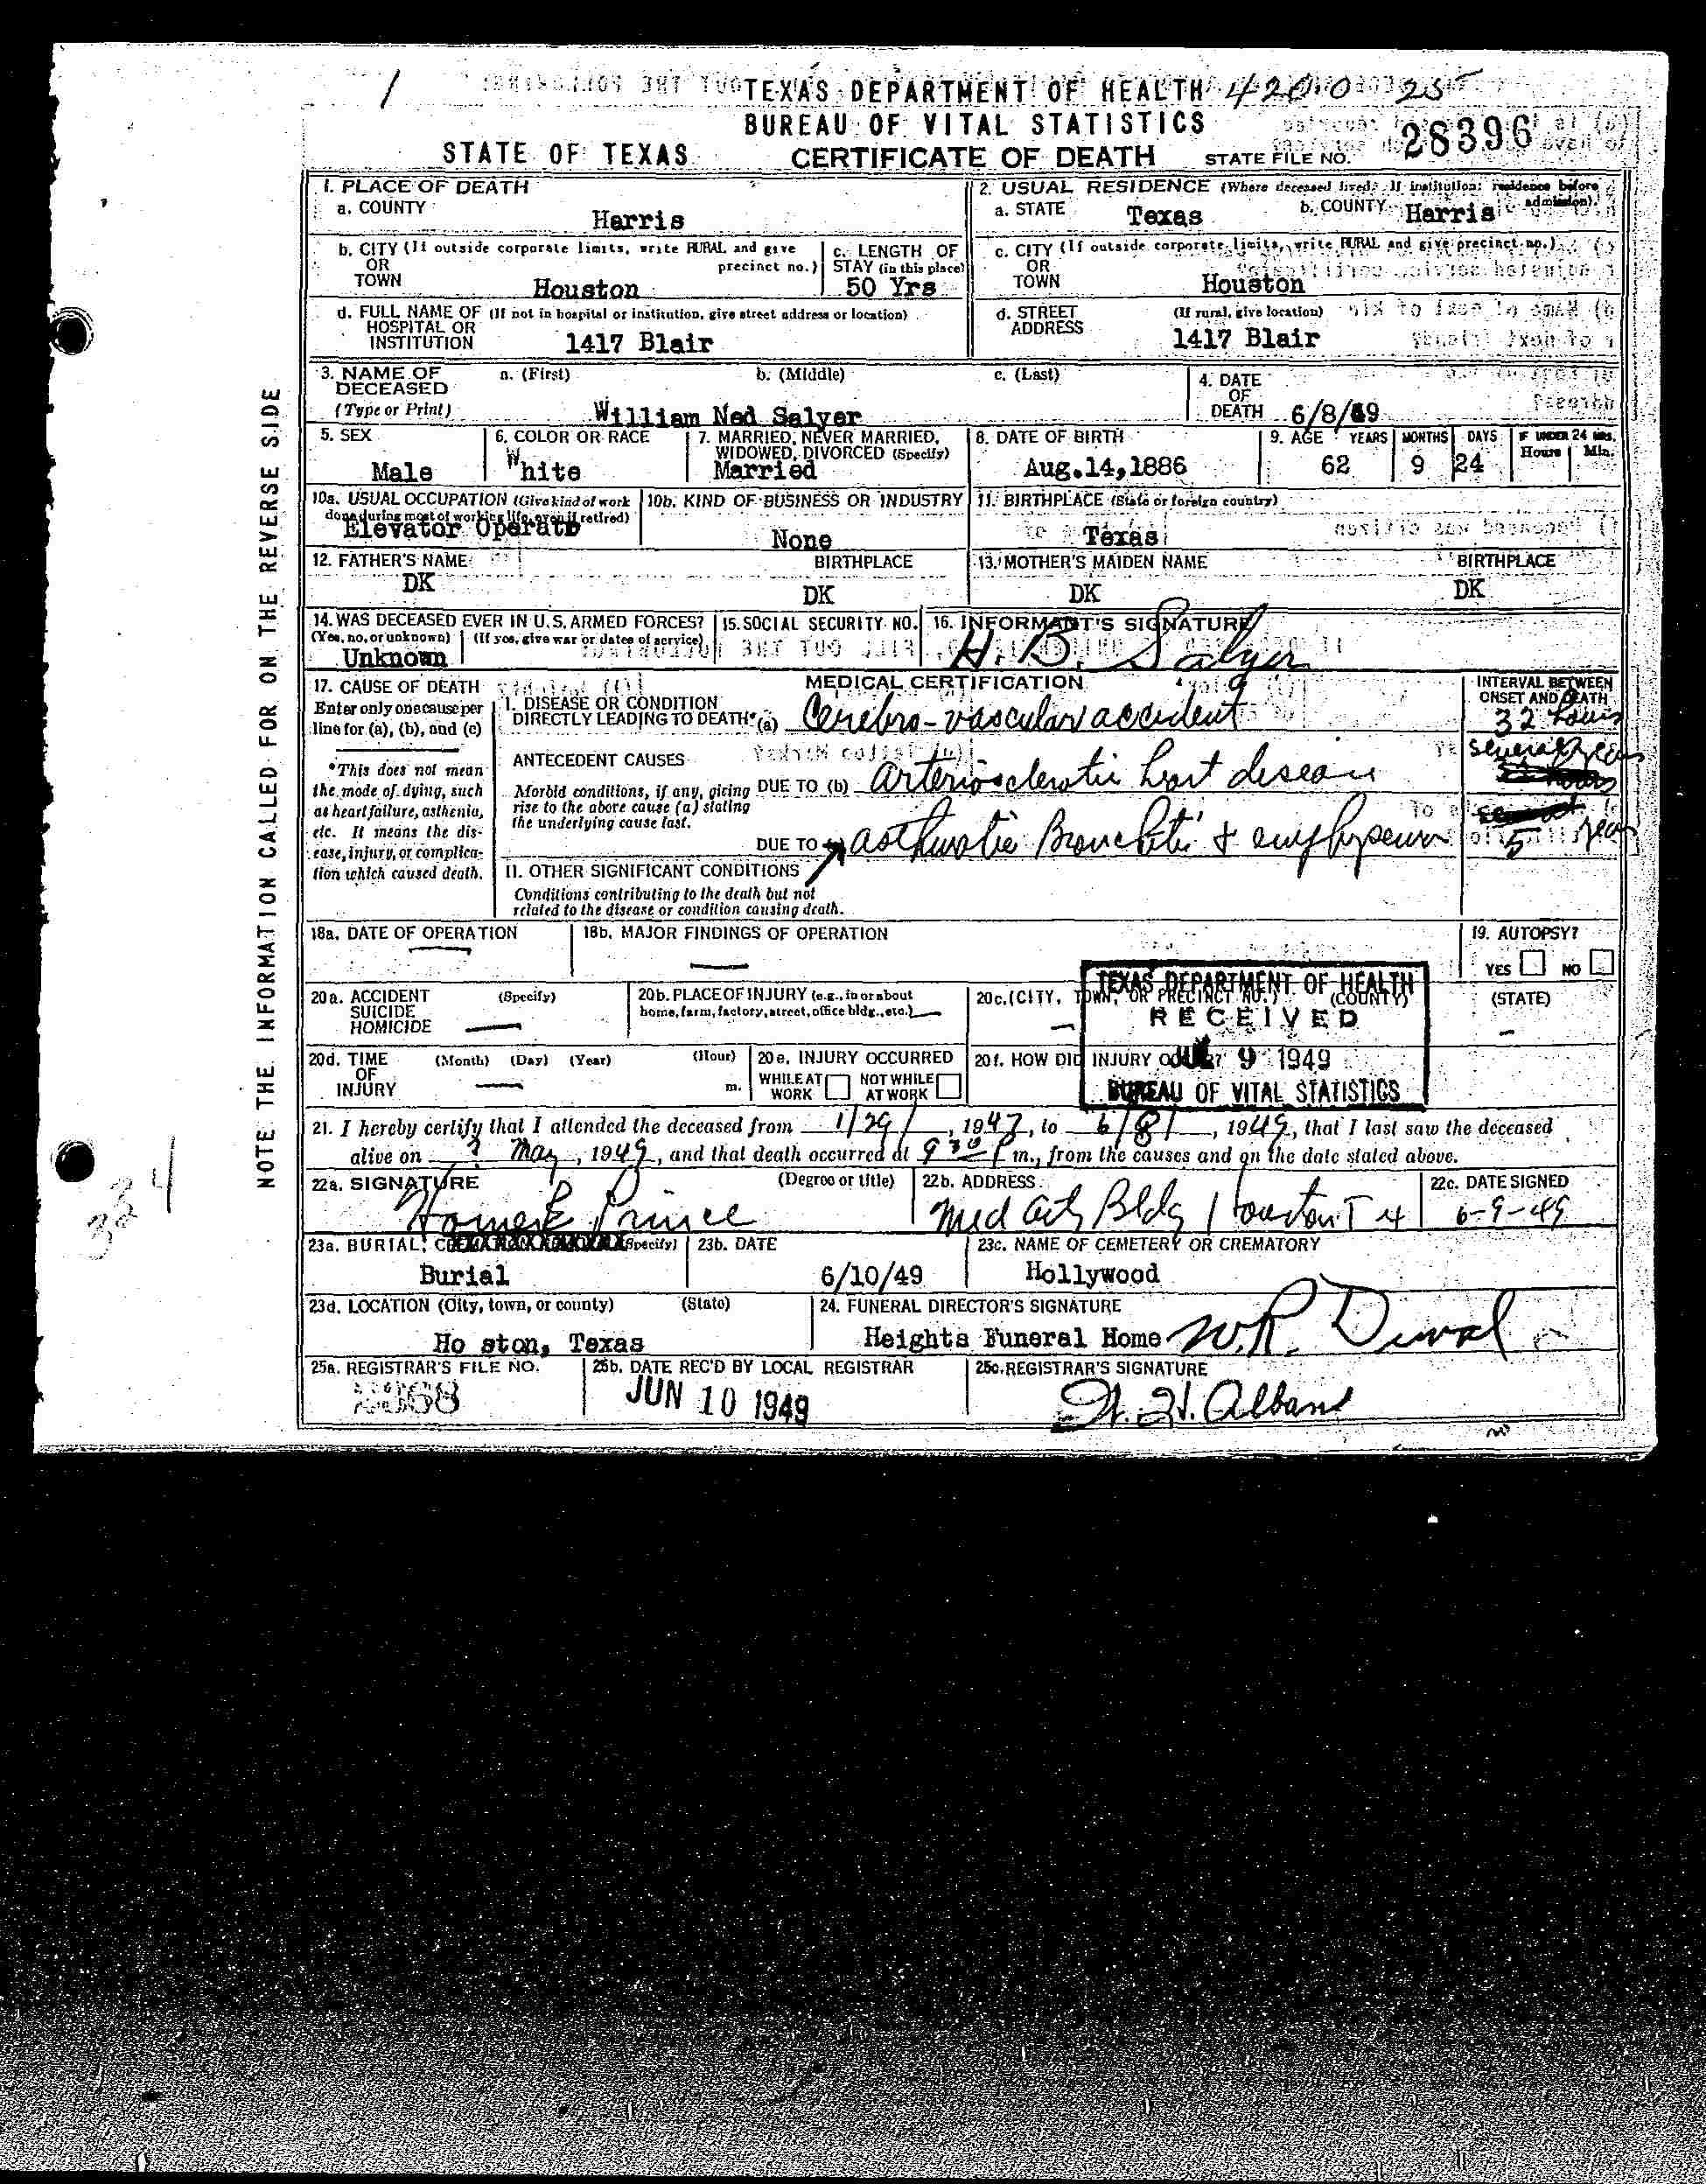 TEXAS DEPARTMENT OF HEALTH 4200 25
BUREAU OF VITAL STATISTICS
STATE OF TEXAS CERTIFICATE OF DEATH STATE FILE NO. 28396
1. PLACE OF DEATH
a. COUNTY Harris
2. USUAL RESIDENCE (Where deceased lived. If institution: residence before admission).
a. STATE Texas b. COUNTY Harris
b. CITY (If outside corporate limits, write RURAL and give precinct no.) OR TOWN Houston
c. LENGTH OF STAY (in this place) 50 Yrs
c. CITY (If outside corporate limits, write RURAL and give precinct no.) OR TOWN Houston
d. FULL NAME OF (If not in hospital or institution, give street address or location) HOSPITAL OR INSTITUTION 1417 Blair
d. STREET ADDRESS (If rural, give location) 1417 Blair
3. NAME OF DECEASED (Type or Print) a. (First) b. (Middle) c. (Last)
William Ned Salyer
4. DATE OF DEATH 6/8/49
5. SEX Male
6. COLOR OR RACE White
7. MARRIED, NEVER MARRIED, WIDOWED, DIVORCED (Specify) Married
8. DATE OF BIRTH Aug.14,1886
9. AGE YEARS 62 MONTHS 9 DAYS 24 IF UNDER 24 HRS. Hours Min.
10a. USUAL OCCUPATION (Give kind of work done during most of working life, even if retired) Elevator Operato
10b. KIND OF BUSINESS OR INDUSTRY None
11. BIRTHPLACE (State or foreign country) Texas
12. FATHER'S NAME DK BIRTHPLACE DK
13. MOTHER'S MAIDEN NAME DK BIRTHPLACE DK
14. WAS DECEASED EVER IN U.S. ARMED FORCES? (Yes, no, or unknown) (If yes, give war or dates of service) Unknown
15. SOCIAL SECURITY NO.
16. INFORMANT'S SIGNATURE H. B. Salyer
17. CAUSE OF DEATH
Enter only one cause per line for (a), (b), and (c)
*This does not mean the mode of dying, such as heart failure, asthenia, etc. It means the disease, injury, or complication which caused death.
MEDICAL CERTIFICATION
INTERVAL BETWEEN ONSET AND DEATH
I. DISEASE OR CONDITION DIRECTLY LEADING TO DEATH* (a) Cerebro-vascular accident 32 hours
ANTECEDENT CAUSES
Morbid conditions, if any, giving rise to the above cause (a) stating the underlying cause last.
DUE TO (b) Arteriosclerotic heart disease several years
DUE TO asthmatic Bronchitis & emphysema 5 years
II. OTHER SIGNIFICANT CONDITIONS
Conditions contributing to the death but not related to the disease or condition causing death.
18a. DATE OF OPERATION —
18b. MAJOR FINDINGS OF OPERATION —
19. AUTOPSY? YES NO
20a. ACCIDENT SUICIDE HOMICIDE (Specify) —
20b. PLACE OF INJURY (e.g., in or about home, farm, factory, street, office bldg., etc.) —
20c. (CITY, TOWN, OR PRECINCT NO.) (COUNTY) (STATE)
— —
20d. TIME OF INJURY (Month) (Day) (Year) (Hour) m. —
20e. INJURY OCCURRED WHILE AT WORK NOT WHILE AT WORK
20f. HOW DID INJURY OCCUR?
TEXAS DEPARTMENT OF HEALTH
RECEIVED
JUL 9 1949
BUREAU OF VITAL STATISTICS
21. I hereby certify that I attended the deceased from 1/29/, 1947, to 6/8/, 1949, that I last saw the deceased
alive on ? May, 1949, and that death occurred at 9 30 P m., from the causes and on the date stated above.
22a. SIGNATURE (Degree or title) Homer E Prince
22b. ADDRESS Med Arts Bldg Houston Tex
22c. DATE SIGNED 6-9-49
23a. BURIAL, (Specify) Burial
23b. DATE 6/10/49
23c. NAME OF CEMETERY OR CREMATORY Hollywood
23d. LOCATION (City, town, or county) (State) Ho ston, Texas
24. FUNERAL DIRECTOR'S SIGNATURE Heights Funeral Home W.R. Duval
25a. REGISTRAR'S FILE NO.
25b. DATE REC'D BY LOCAL REGISTRAR JUN 10 1949
25c. REGISTRAR'S SIGNATURE
NOTE THE INFORMATION CALLED FOR ON THE REVERSE SIDE
334